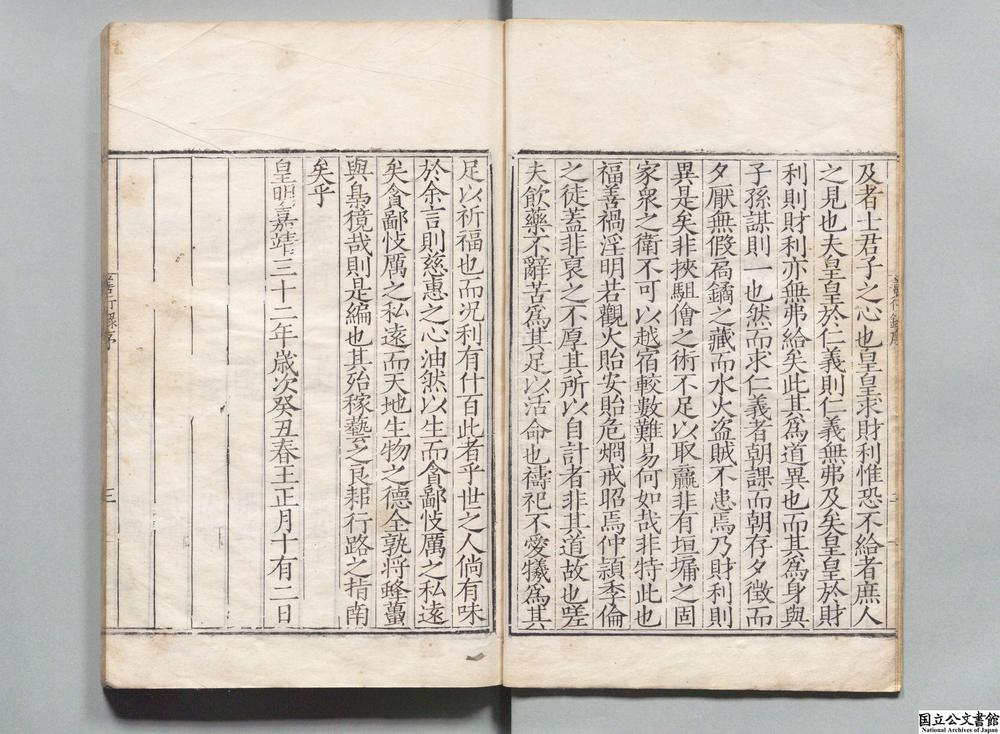 及者士君子之心也皇皇求財利惟恐不給者庶人
之見也夫皇皇於仁義則仁義無弗及矣皇皇於財
利則財利亦無弗給矣此其爲道異也而其爲身與
子孫謀則一也然而求仁義者朝課而朝存夕徵而
夕厭無假扃鐍之藏而水火盗賊不患焉乃財利則
異是矣非挾駔儈之術不足以取贏非有垣墉之固
家衆之衛不可以越宿較數難易何如哉非特此也
福善禍淫明若觀火貽安貽危烱戒昭焉仲頴季倫
之徒蓋非哀之不厚其所以自計者非其道故也嗟
夫飲藥不辭苦爲其足以活命也禱祀不愛犠爲其
足以祈福也而况利有什百此者乎世之人倘有味
於余言則慈惠之心油然以生而貪鄙忮厲之私遠
矣貪鄙忮厲之私遠而天地生物之德全孰將蜂蠆
與梟獍哉則是編也其殆稼藝之良耜行路之指南
矣乎
皇明嘉靖三十二年歲次癸丑春王正月十有二日
序
三
国立公文書館
National Archives of Japan